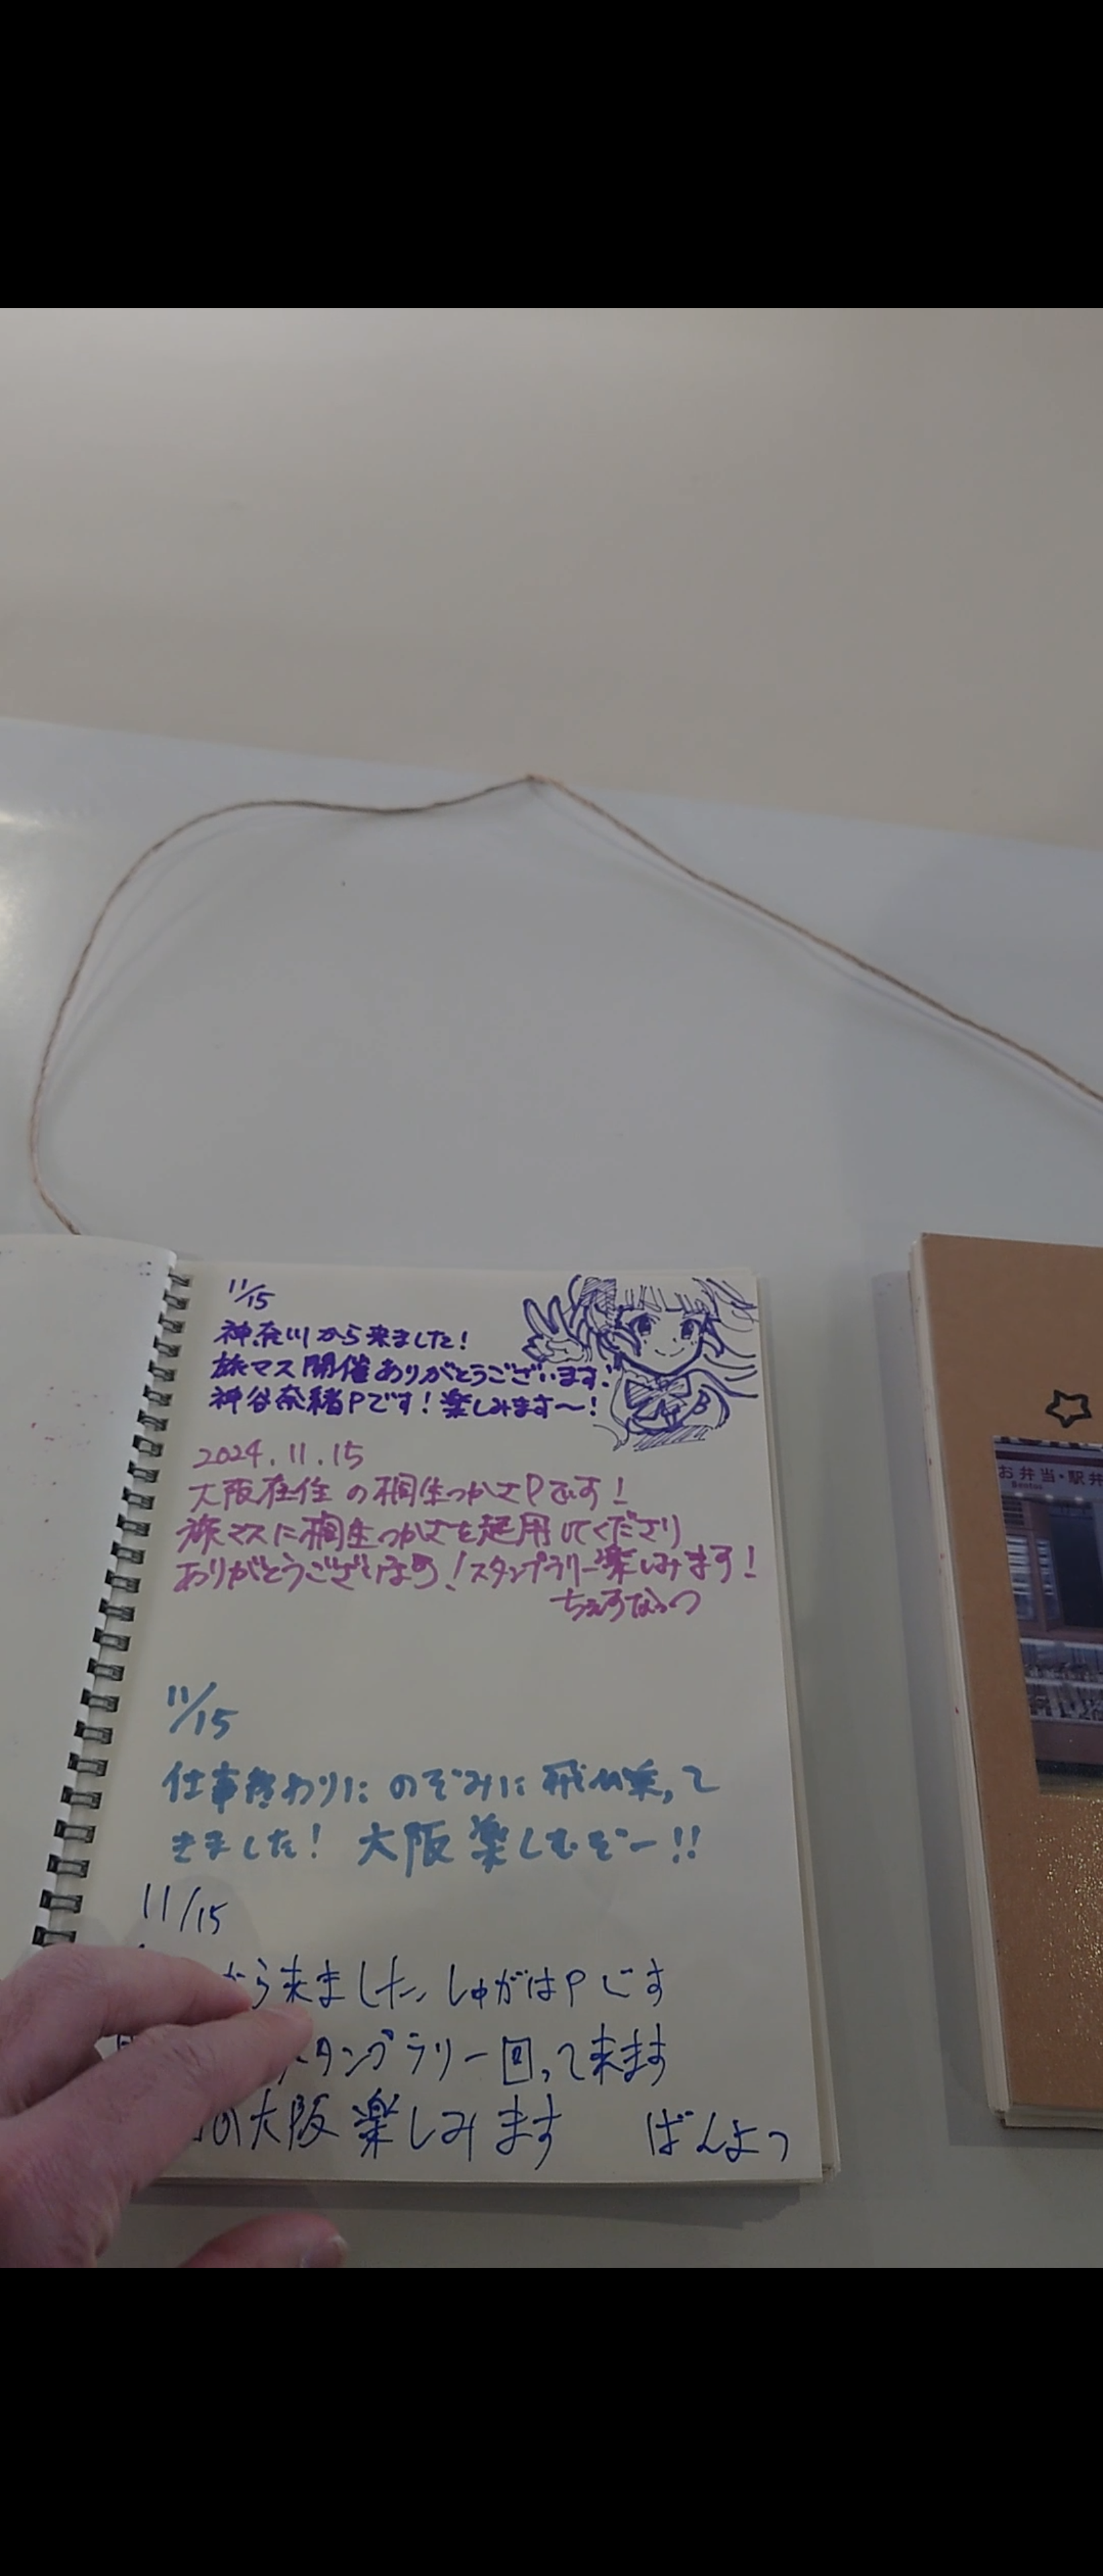 11/15
神奈川から来ました!
旅マス開催ありがとうございます!
神谷奈緒Pです!楽しみます〜!
2024.11.15
大阪在住の桐生つかさPです!
旅マスに桐生つかさを起用してくださり
ありがとうございます!スタンプラリー楽しみます!
ちぇすなっつ
11/15
仕事終わりにのぞみに飛び乗って
きました! 大阪楽しむぞー!!
11/15
から来ました、しゅがはPです
スタンプラリー回って来ます
の大阪楽しみます ばんよっ
お弁当・駅弁
Bentos